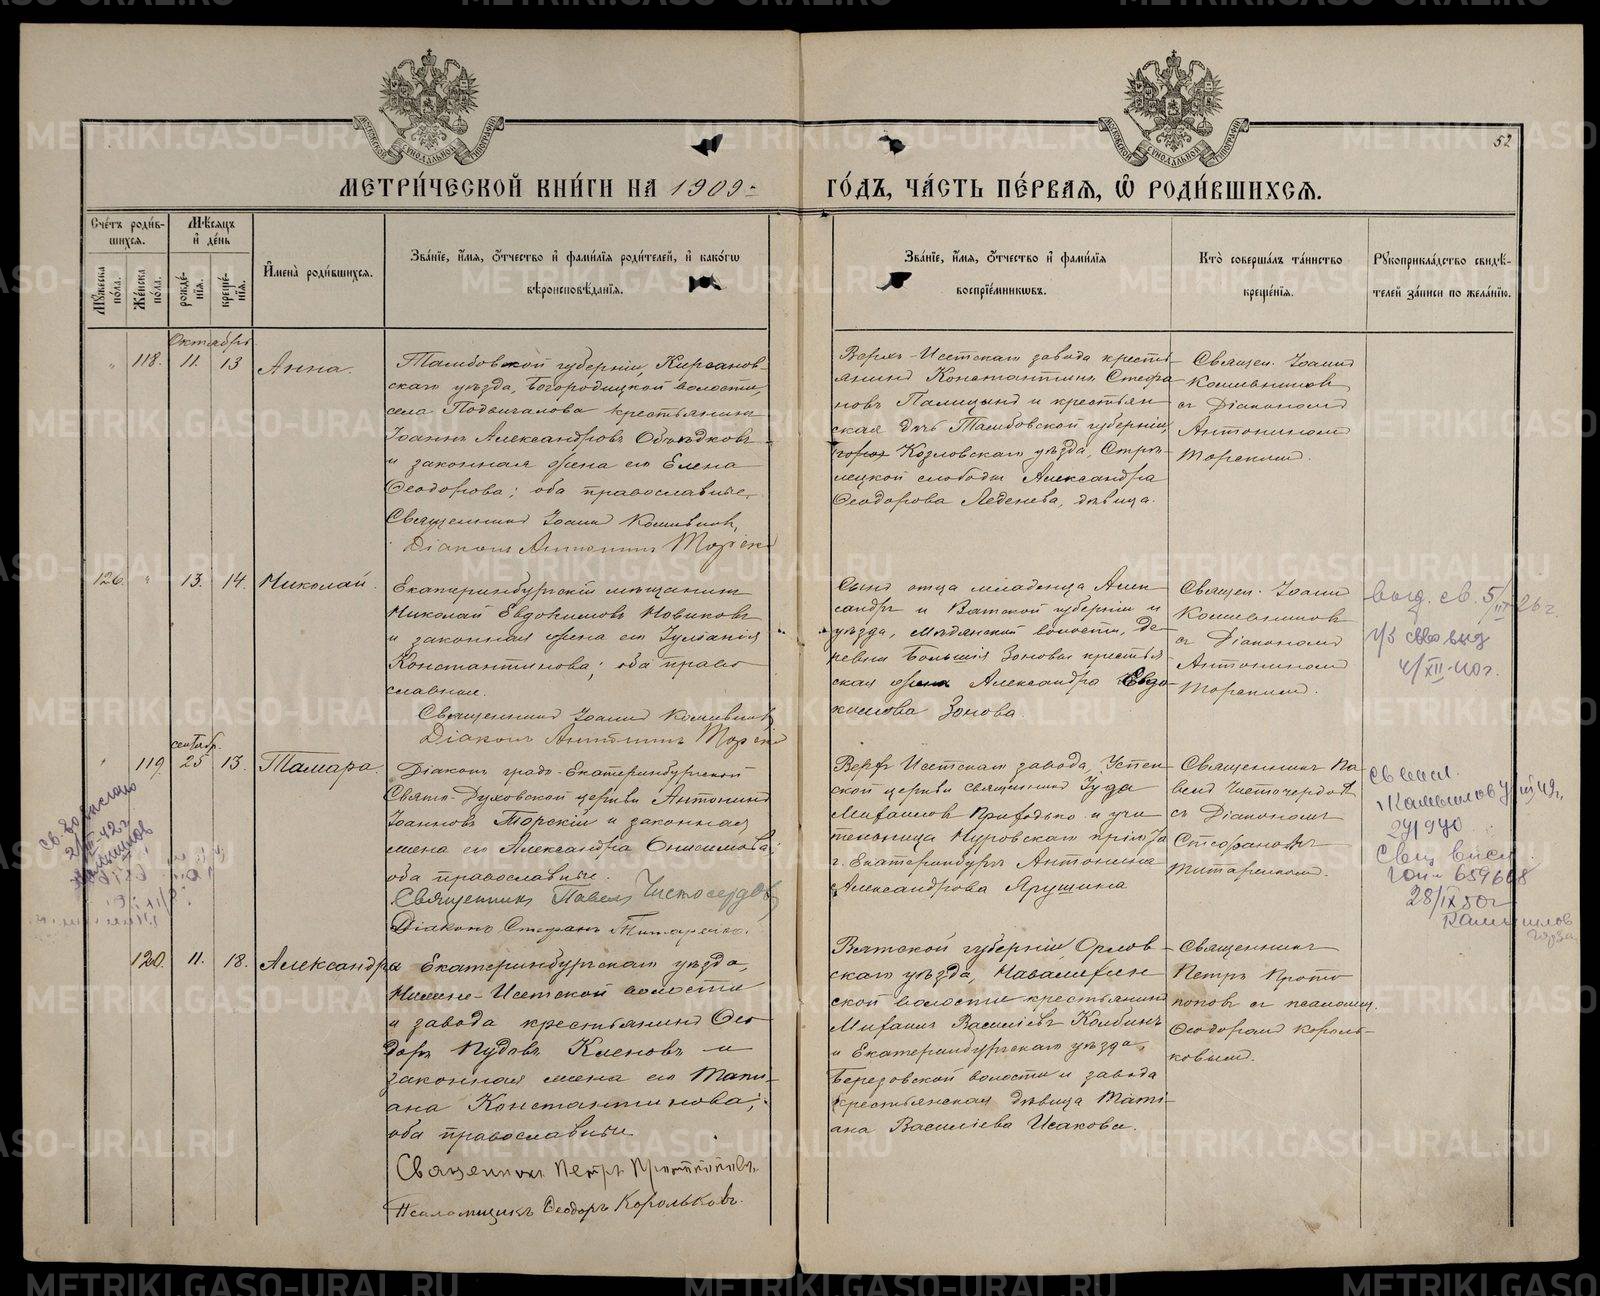 52
МЕТРИ́ЧЕСКОЙ КНИ́ГИ НА 1909
ГО́ДЪ, ЧА́СТЬ ПЕ́РВАЯ, Ѡ҆ РОДИ́ВШИХСѦ.
Сче́тъ роди́в-
шихся.
Мѣ́сяцъ
и҆ де́нь
Му́жеска по́ла.
Же́нска по́ла.
рожде́-
нїя.
креще́-
нїя.
И҆мена̀ роди́вшихся.
Зва́нїе, и҆́мя, ѻ҆́тчество и҆ фами́лїя роди́телей, и҆ како́гѡ
вѣроисповѣ́данїя.
Зва́нїе, и҆́мя, ѻ҆́тчество и҆ фами́лїя
воспрїе́мникѡвъ.
Кто̀ соверша́лъ та́инство
креще́нїя.
Рꙋкоприкла́дство свидѣ́-
телей за́писи по жела́нїю.
Октябрь
" 118. 11. 13 Анна.
Тамбовской губерніи, Кирсанов-
скаго уѣзда, Богородицкой волости,
села Подвигалова крестьянинъ
Іоаннъ Александровъ Объѣдковъ
и законная жена его Елена
Ѳеодорова; оба православные.
Священникъ Іоаннъ
Діаконъ Антонинъ Торскі
Верхъ-Исетскаго завода кресть-
янинъ Константинъ Стефа
новъ Палицынъ и крестьян
ская дѣв Тамбовской губерніи,
Козловскаго уѣзда, Стрѣ-
лецкой слободы Александра
Ѳеодорова Леденева, дѣвица.
Священ. Іоаннъ
съ Діакономъ
Антониномъ
Торскимъ.
126. " 13. 14. Николай.
Екатеринбургскій мѣщанинъ
Николай Евдокимовъ Новиковъ
и законная жена его Іуліанія
Константинова; оба право
славные.
Священникъ Іоаннъ
Діаконъ Антонинъ Торскі
Сынъ отца младенца Алек
сандръ и Вятской губерніи и
уѣзда, Мѣдянской волости, де
ревни Большія Зоновы крестья
ская жена Александра Евдо-
кимова Зонова.
Священ. Іоаннъ
съ Діакономъ
Антониномъ
Торскимъ.
выд. св. 5/III 26 г.
4/XII-40 г.
сентябр.
" 119. 25 13. Тамара.
Діаконъ градо-Екатеринбургской
Свято-Духовской церкви Антонинъ
Іоанновъ Торскій и законная
жена его Александра Онисимова;
оба православные.
Священникъ Павелъ Чистосердов
Діаконъ Стефанъ Титаренко.
Верх Исетскаго завода, Успен
ской церкви священникъ Іуда
Михаиловъ Приходько и учи
тельница Нуровскаго прію
г. Екатеринбургъ Антонина
Александрова Ярушина
Священникъ Па
велъ Чистосердов
съ Діакономъ
Стефаномъ
Титаренкомъ.
св
Камышлов
241940
659668
28/IX 50 г
Камышлов
120. 11. 18. Александра
Екатеринбургскаго уѣзда,
Нижне-Исетской волости
и завода крестьянинъ Ѳео
доръ Пудовъ Кленовъ и
законная жена его Тати-
ана Константинова;
оба православные
Священникъ Петръ Протопоповъ.
Псаломщикъ Ѳеодоръ Корольковъ.
Вятской губерніи, Орлов
скаго уѣзда,
ской волости крестьянинъ
Михаилъ Василіевъ Колбинъ
и Екатеринбургскаго уѣзда,
Березовской волости и завода
крестьянская дѣвица Тати-
ана Василіева Исакова.
Священникъ
Петръ Прото
поповъ съ псаломщ.
Ѳеодоромъ Король-
ковымъ.
METRIKI.GASO-URAL.RU